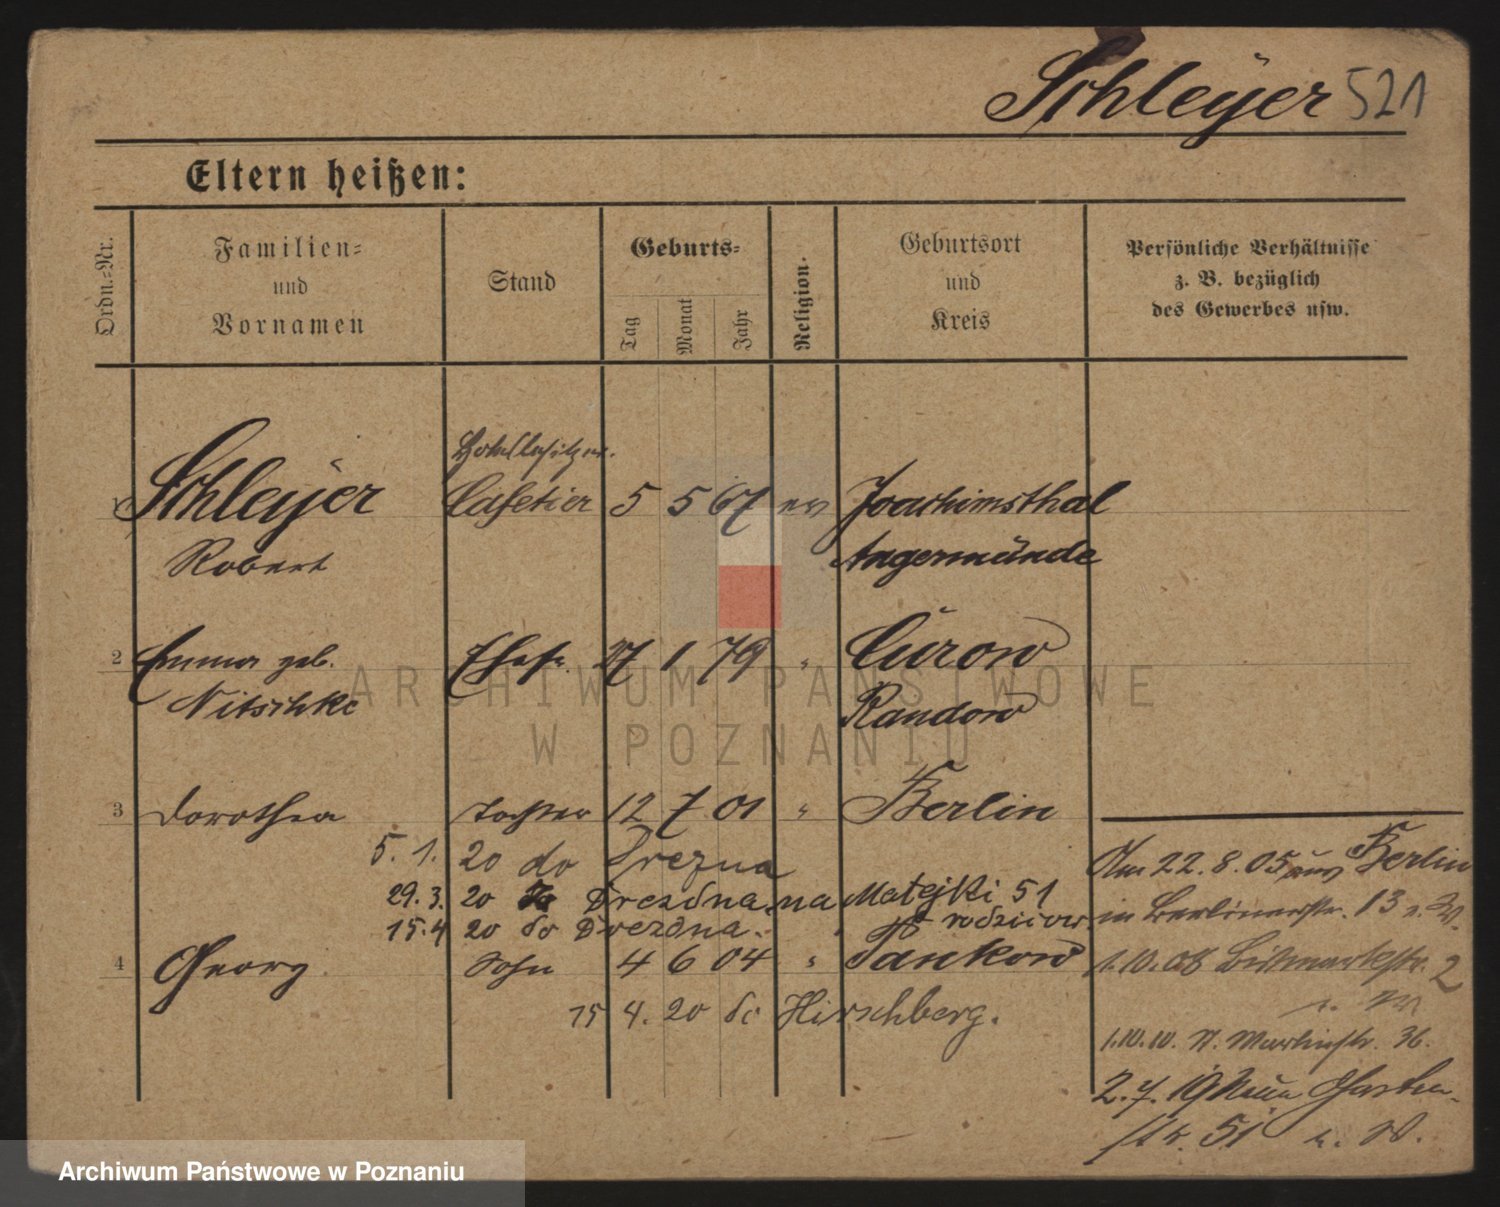 Schleyer 521
Eltern heißen:
Ordn.=Nr.
Familien=
und
Vornamen
Stand
Geburts=
Tag
Monat
Jahr
Religion.
Geburtsort
und
Kreis
Persönliche Verhältnisse
z. B. bezüglich
des Gewerbes usw.
Hotelbesitzer.
1 Schleyer Cafetier 5 5 67 ev Joachimsthal
Robert Angermünde
2 Emma geb. Ehefr. 27 1 79 " Curow
Nitschke Randow
3 Dorothea Tochter 12 7 01 " Berlin
5. 1. 20 do Drezna
29. 3. 20 Drezdna na Matejki 51
15. 4 20 do Drezdna. rodziców
4 Georg Sohn 4 6 04 " Pankow
15 4. 20 do Hirschberg.
Am 22. 8. 05 aus Berlin
in Berlinerstr. 13 z. W.
1. 10. 08 Bismarckstr. 2
z. W
1. 10. 10. St. Martinstr. 36.
2. 7. 19 Neue Garten-
str. 51 z. W.
ARCHIWUM PAŃSTWOWE
W POZNANIU
Archiwum Państwowe w Poznaniu